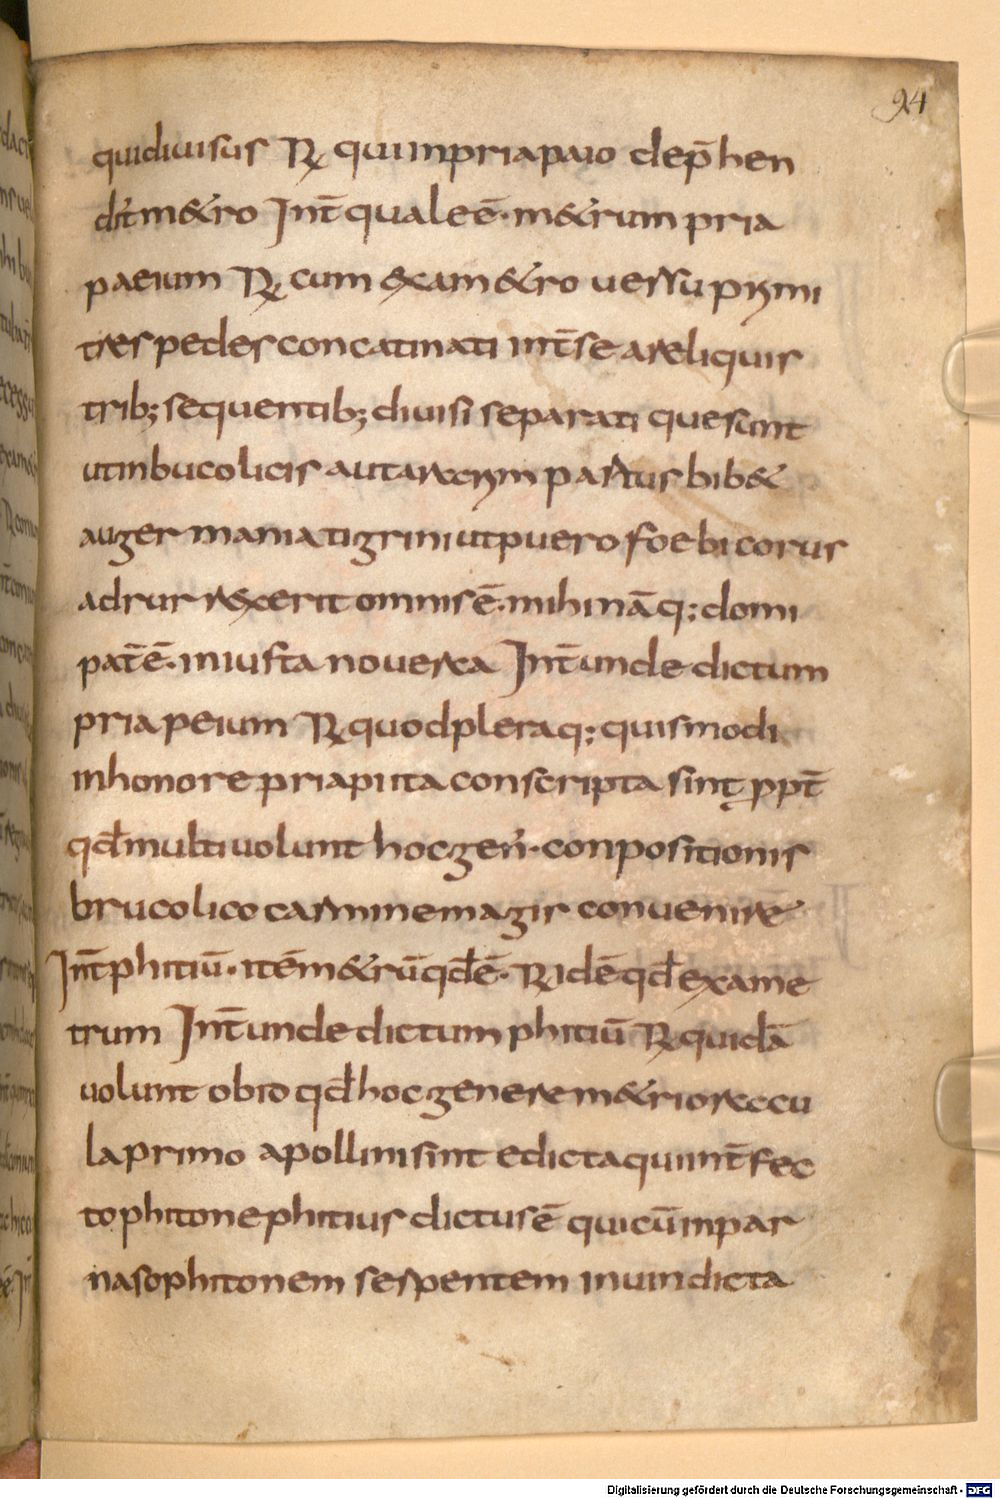 94
quidiuisus R qui inpriapaio dep̄hen
dit̄ m&ro Int̄ quale ē · m&rum pria
paeium R cum exam&ro uersu primi
tres pedes concatinati int̄ se a reliquis
trib; sequentib; diuisi separati que sunt
ut in bucolicis aut ararim partus bib&
auger mania tigrini ut puero foebi corus
adrur rexerit omnis ē · mihi nā q; domi
pat̄ ē · iniusta nouerca Int̄ unde dictum
priapeium R quod pleraq; quismodi
in honore priapi ita conscripta sint, ꝓpt̄
qđ multi uolunt hoc gen̄ · conpositionis
brucolico carmine magis conuenire
Int̄ phitiū · itēm&rū qđ ē · R idē qđ exame
trum Int̄ unde dictum phitiū R quidā
uolunt obio qđ hoc genere m&rio recu
la primo apollini sint edicta qui int̄fec
to phitone phitius dictus ē qui cū in par
naso phitonem serpentem in uindicta
Digitalisierung gefördert durch die Deutsche Forschungsgemeinschaft - DFG